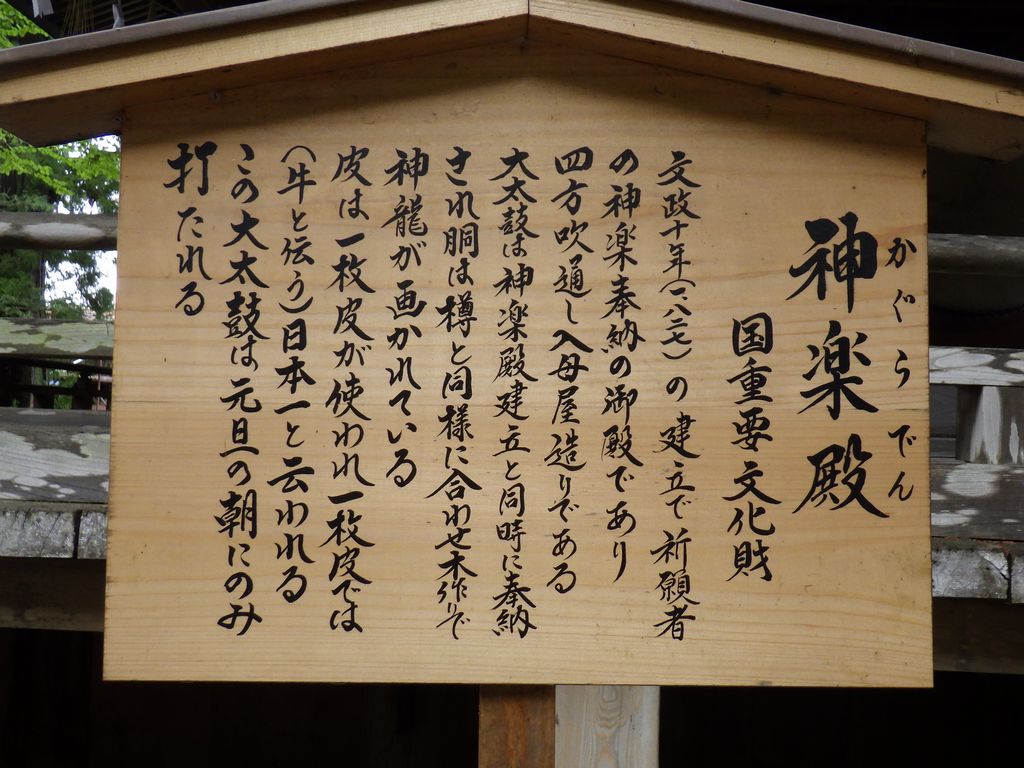 神楽殿
かぐらでん
国重要文化財
文政十年(一、八二七)の建立で祈願者
の神楽奉納の御殿であり
四方吹通し入母屋造りである
大太鼓は神楽殿建立と同時に奉納
され胴は樽と同様に合わせ木作りで
神龍が画かれている
皮は一枚皮が使われ一枚皮では
(牛と伝う)日本一と云われる
この大太鼓は元旦の朝にのみ
打たれる